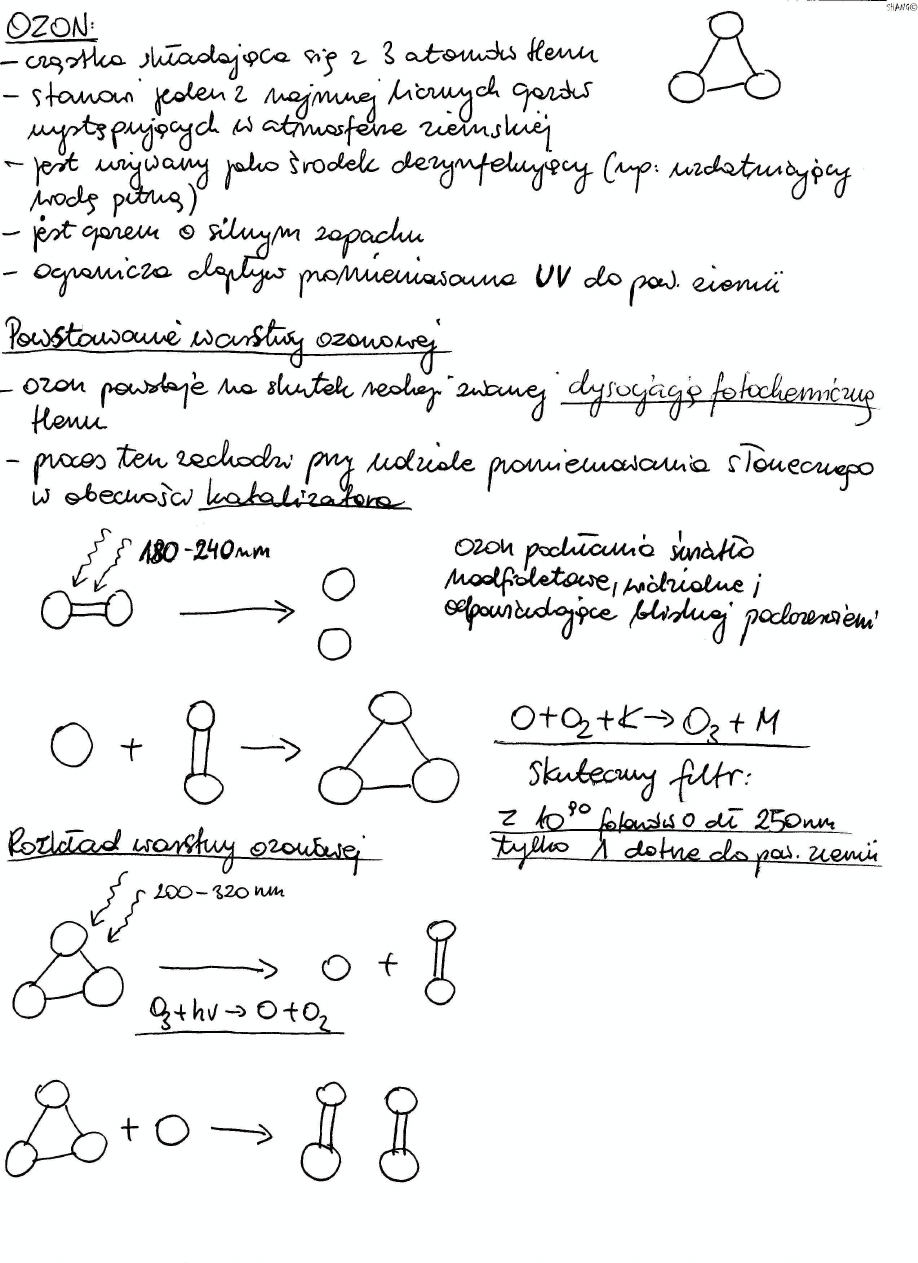 SHANG©
OZON:
- cząstka składająca się z 3 atomów tlenu
- stanowi jeden z najmniej licznych gazów
występujących w atmosferze ziemskiej
- jest używany jako środek dezynfekujący (np: uzdatniający
wodę pitną)
- jest gazem o silnym zapachu
- ogranicza dopływ promieniowania UV do pow. ziemii
Powstawanie warstwy ozonowej
- ozon powstaje na skutek reakcji zwanej dysocjacją fotochemiczną
tlenu
- proces ten zachodzi przy udziale promieniowania słonecznego
w obecności katalizatora
180-240nm
Ozon pochłania światło
nadfioletowe, widzialne i
odpowiadające bliskiej podczerwieni
+ →
O+O₂+K→O₃+M
Skuteczny filtr:
z 10⁹⁰ fotonów o dł 250nm
tylko 1 dotrze do pow. ziemii
Rozkład warstwy ozonowej
200-320 nm
→ +
O₃+hv→O+O₂
+ →